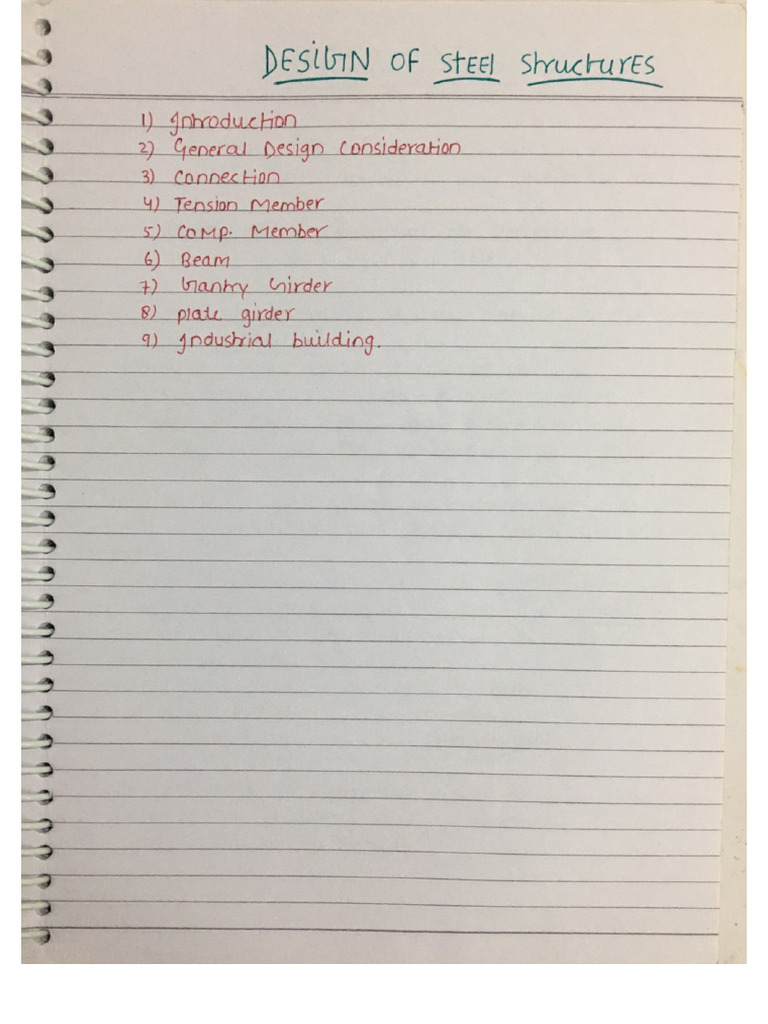 DESIGN OF STEEL STRUCTURES
1) Introduction
2) General Design Consideration
3) Connection
4) Tension Member
5) Comp. Member
6) Beam
7) Gantry Girder
8) plate girder
9) Industrial building.